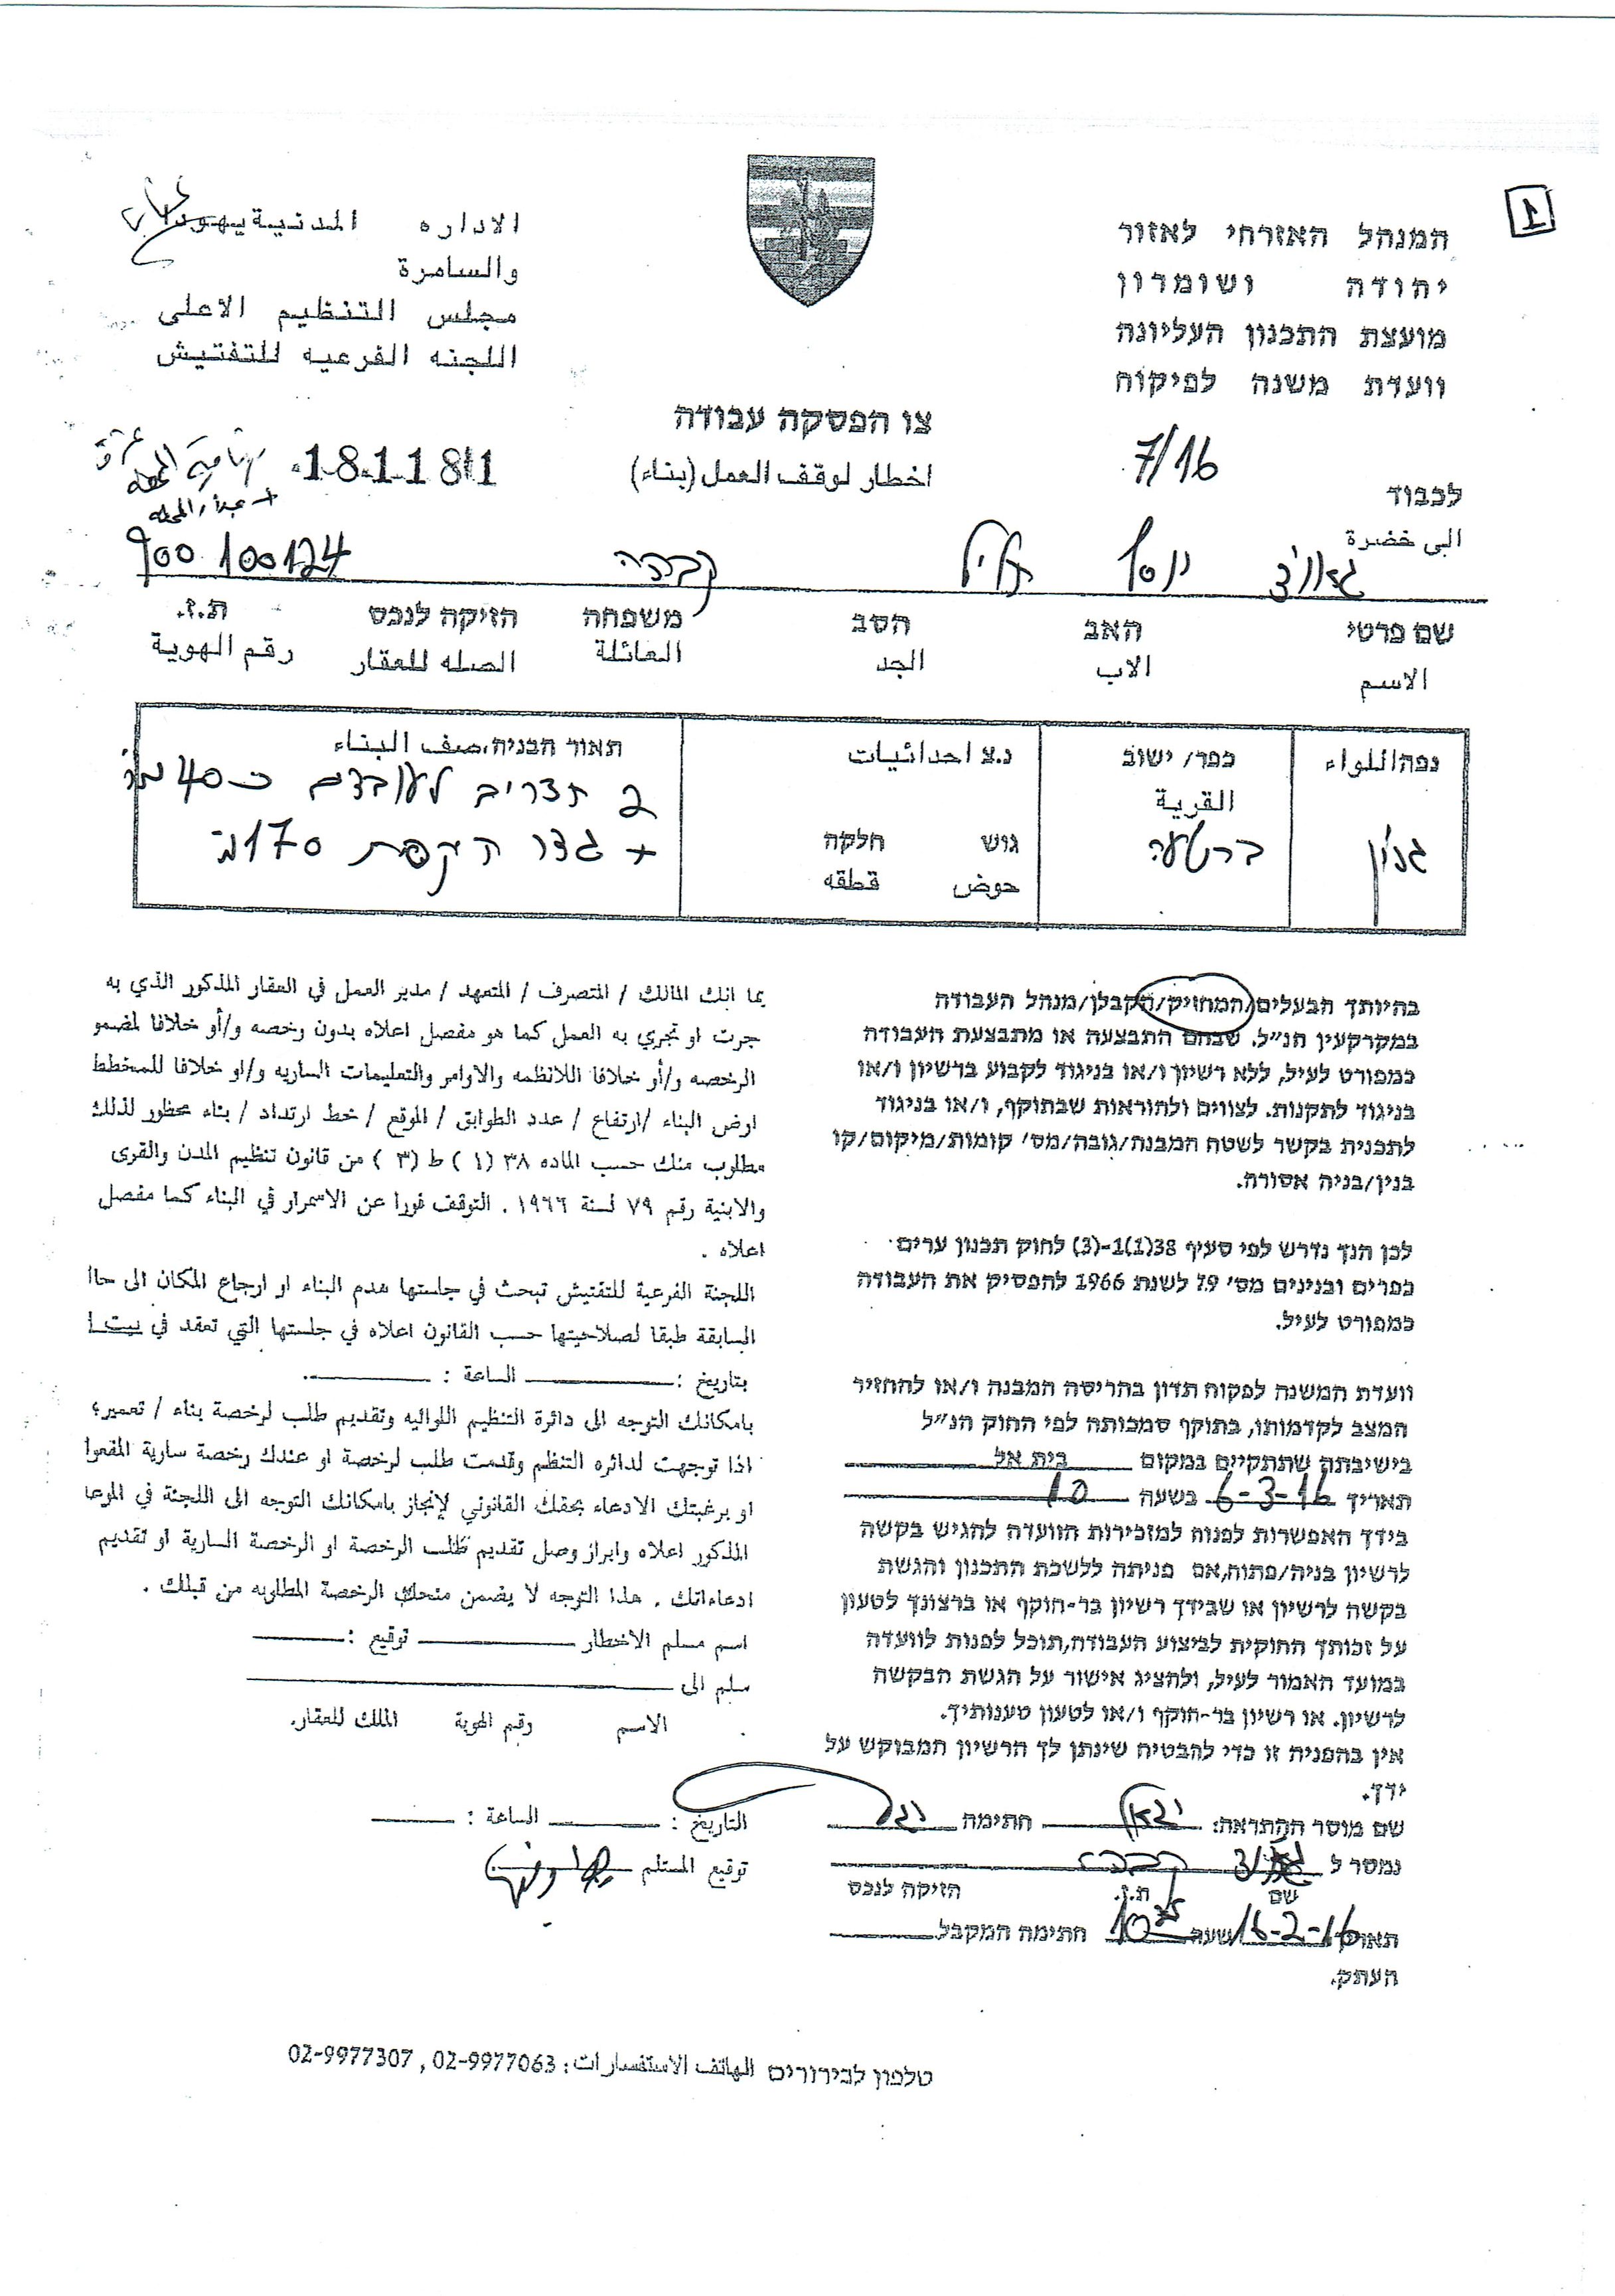 1
המנהל האזרחי לאזור
יהודה ושומרון
מועצת התכנון העליונה
וועדת משנה לפיקוח
الاداره المدنية يهودا
والسامرة
مجلس التنظيم الاعلى
اللجنه الفرعيه للتفتيش
צו הפסקה עבודה
اخطار لوقف العمل (بناء)
7/16
181181
לכבוד
الى حضرة
יוסף קבהה 900100124
שם פרטי האב הסב משפחה הזיקה לנכס ת.ז.
الاسم الاب الجد العائلة الصله للعقار رقم الهوية
נפה/اللواء
ג'נין
כפר/ ישוב
القرية
ברטעה
נ.צ احداثيات
גוש חלקה
حوض قطقه
תאור הבניה،صف البناء
2 צריפים לעובדים כ-40 מ"ר
+ גדר היקפית 170 מ'
בהיותך הבעלים/המחזיק/הקבלן/מנהל העבודה
במקרקעין הנ"ל. שבהם התבצעה או מתבצעת העבודה
כמפורט לעיל, ללא רשיון ו/או בניגוד לקבוע ברשיון ו/או
בניגוד לתקנות. לצווים ולהוראות שבתוקף, ו/או בניגוד
לתכנית בקשר לשטח המבנה/גובה/מס' קומות/מיקום/קו
בנין/בניה אסורה.
לכן הנך נדרש לפי סעיף 38(1)1-(3) לחוק תכנון ערים
כפרים ובנינים מס' 79 לשנת 1966 להפסיק את העבודה
כמפורט לעיל.
וועדת המשנה לפקוח תדון בהריסה המבנה ו/או להחזיר
המצב לקדמותו, בתוקף סמכותה לפי החוק הנ"ל
בישיבתה שתתקיים במקום בית אל
תאריך 6-3-16 בשעה 10
בידך האפשרות לפנות למזכירות הוועדה להגיש בקשה
לרשיון בניה/פתוח,אם פניתה ללשכת התכנון והגשת
בקשה לרשיון או שבידך רשיון בר-תוקף או ברצונך לטעון
על זכותך החוקית לביצוע העבודה,תוכל לפנות לוועדה
במועד האמור לעיל, ולהציג אישור על הגשת הבקשה
לרשיון. או רשיון בר-תוקף ו/או לטעון טענותיך.
אין בהפניה זו כדי להבטיח שינתן לך הרשיון המבוקש על
ידך.
שם מוסר ההתראה: יגאל חתימה
נמסר ל קבהה
שם ת.ז. הזיקה לנכס
תאריך 16-2-16 שעה 10 חתימה המקבל
העתק.
بما انك المالك / المتصرف / المتعهد / مدير العمل في العقار المذكور الذي به
جرت او تجري به العمل كما هو مفصل اعلاه بدون رخصه و/أو خلافا لمضمو
الرخصه و/أو خلافا اللانظمه والاوامر والتعليمات الساريه و/او خلافا للمخطط
ارض البناء /ارتفاع / عدد الطوابق / الموقع / خط ارتداد / بناء محظور لذلك
مطلوب منك حسب الماده ٣٨ (١) ط (٣) من قانون تنظيم المدن والقرى
والابنية رقم ٧٩ لسنة ١٩٦٦ . التوقف فورا عن الاسمرار في البناء كما مفصل
اعلاه .
اللجنة الفرعية للتفتيش تبحث في جلستها هدم البناء او ارجاع المكان الى حاا
السابقة طبقا لصلاحيتها حسب القانون اعلاه في جلستها التي تعقد في بيت ا
بتاريخ : الساعة :
بامكانك التوجه الى دائرة التنظيم اللوائيه وتقديم طلب لرخصة بناء / تعمير؟
اذا توجهت لدائره التنظم وقدمت طلب لرخصة او عندك رخصة سارية المفعوا
او برغبتك الادعاء بحقك القانوني لإنجاز بامكانك التوجه الى اللجنة في الموعا
المذكور اعلاه وابراز وصل تقديم طلب الرخصة او الرخصة السارية او تقديم
ادعاءاتك . هذا التوجه لا يضمن منحك الرخصة المطلوبه من قبلك .
اسم مسلم الاخطار توقيع :
سلم الى
الاسم رقم الهوية الملك للعقار.
التاريخ : الساعة :
توقيع المستلم
טלפון לבירורים الهاتف الاستفسارات: 02-9977063 , 02-9977307